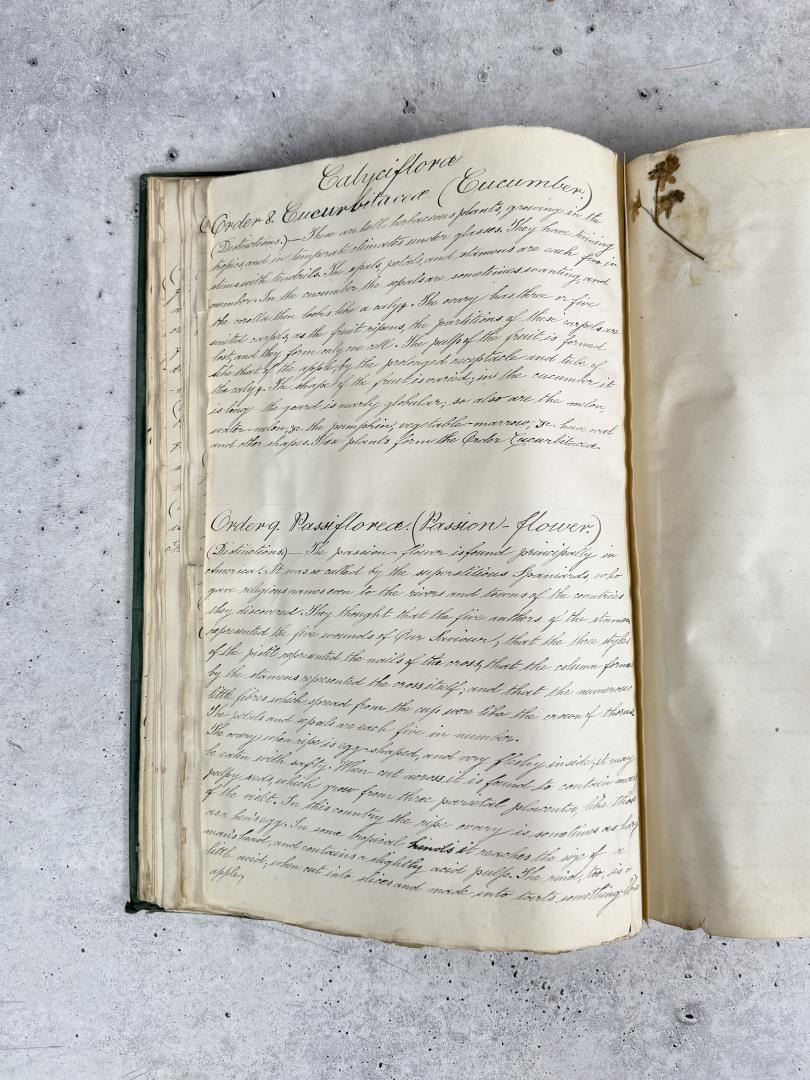 Calyciflora
Order 8. Cucurbitaceæ. (Cucumber.)
(Distinctions.)—These are tall herbaceous plants, growing in the
tropics and in temperate climates under glasses. They have twining
stems with tendrils. The sepals, petals, and stamens are each five in
number. In the cucumber the sepals are sometimes wanting, and
the corolla then looks like a calyx. The ovary has three or five
united carpels, as the fruit ripens, the partitions of these carpels are
lost, and they form only one cell. The pulp of the fruit is formed
like that of the apple, by the prolonged receptacle and tube of
the calyx. The shape of the fruit is varied; in the cucumber it
is long the gourd is nearly globular; so also are the melon,
water-melon, &c. the pumpkin, vegetable-marrow, &c. have oval
and other shapes. These plants form the Order Cucurbitaceæ.
Order 9. Passifloreæ. (Passion-flower.)
(Distinctions)—The passion-flower is found principally in
America. It was so called by the superstitious Spaniards, who
gave religious names even to the rivers and towns of the countries
they discovered. They thought that the five anthers of the stamens
represented the five wounds of Our Saviour; that the three styles
of the pistil represented the nails of the cross, that the column formed
by the stamens represented the cross itself; and that the numerous
little fibres which spread from the cup were like the crown of thorns.
The petals and sepals are each five in number.
The ovary when ripe is egg-shaped, and very fleshy inside, it may
be eaten with safty. When cut across it is found to contain many
pulpy seeds, which grow from three parietal placentæ, like those
of the violet. In this country the ripe ovary is sometimes as large
as a hen's egg. In some tropical kinds it reaches the size of a
man's head, and contains a slightly acid pulp. The rind, too, is a
little acid, when cut into slices and made into tarts something like
apple,